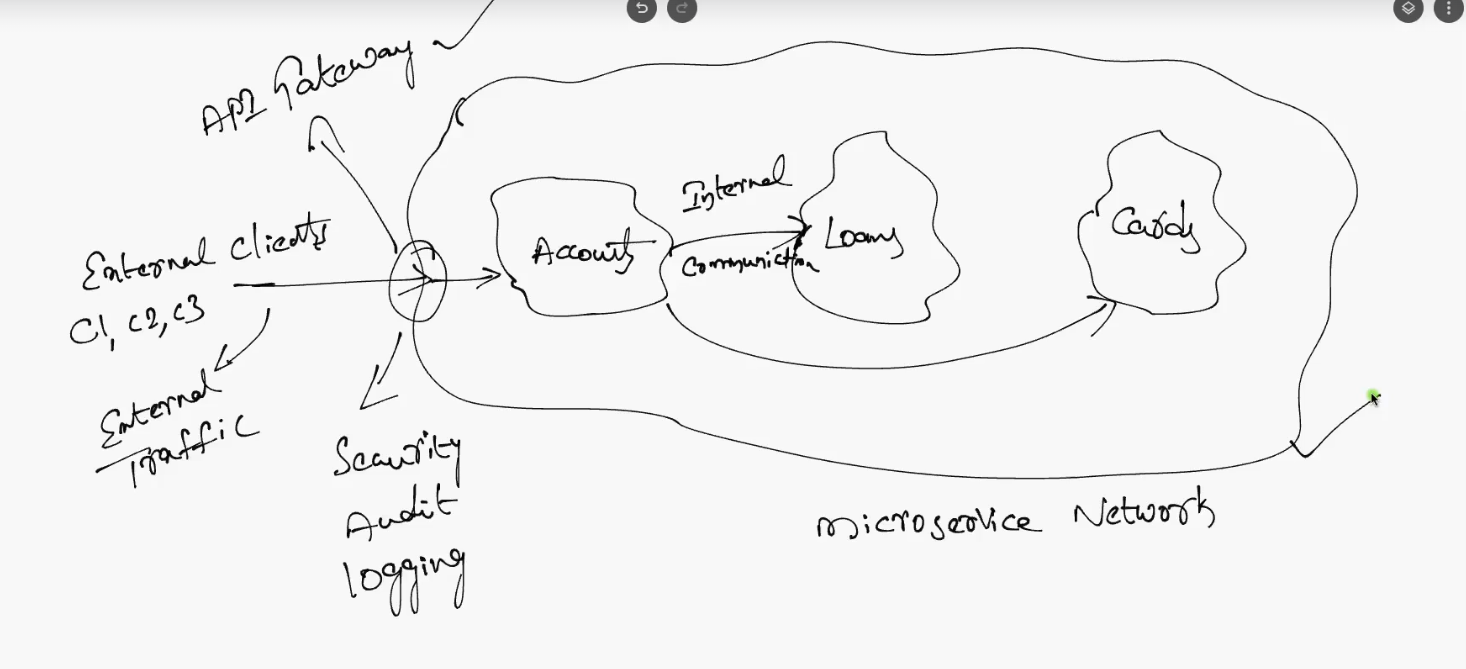 API Gateway
External Clients
C1, C2, C3
External
Traffic
Security
Audit
logging
Accounts
Internal
Communiction
Loans
Cards
microservice Network